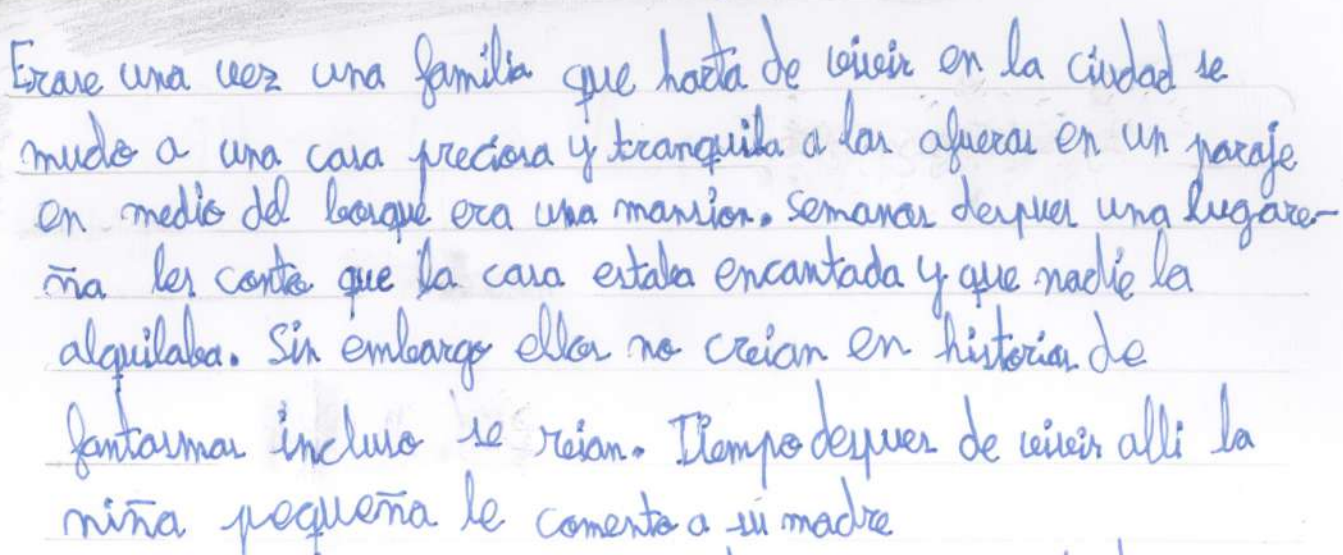 Erase una vez una familia que harta de vivir en la ciudad se
mudo a una casa preciosa y tranquila a las afueras en un paraje
en medio del bosque era una mansion. Semanas despues una lugare-
ña les conto que la casa estaba encantada y que nadie la
alquilaba. Sin embargo ellos no creian en historias de
fantasmas incluso se reian. Tiempo despues de vivir alli la
niña pequeña le comento a su madre